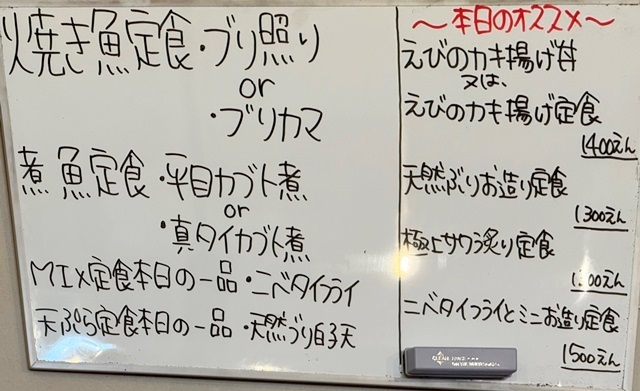 焼き魚定食・ブリ照り
or
・ブリカマ
煮魚定食・平目カブト煮
or
・真タイカブト煮
MIX定食本日の一品・ニベタイフライ
天ぷら定食本日の一品・天然ブリ白子天
〜本日のオススメ〜
えびのカキ揚げ丼
又は、
えびのカキ揚げ定食
1400えん
天然ぶりお造り定食
1300えん
極上サワラ炙り定食
00えん
ニベタイフライとミニお造り定食
1500えん
CLEAN